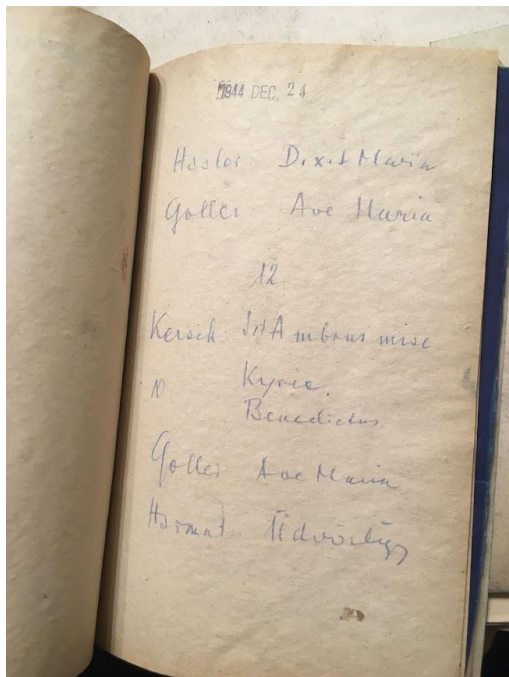 1944 DEC. 24
Hasler Dixit Maria
Goller Ave Maria
12
Kersch Szt Ambrus mise
" Kyrie
Benedictus
Goller Ave Maria
Harmat Üdvözlégy